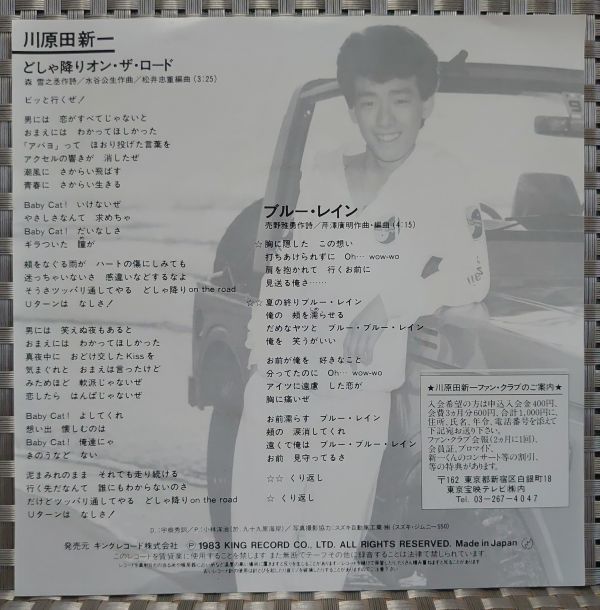 川原田新一
どしゃ降りオン・ザ・ロード
森 雪之丞作詩／水谷公生作曲／松井忠重編曲(3:25)
ビッと行くぜ！
男には 恋がすべてじゃないと
おまえには わかってほしかった
「アバヨ」って ほおり投げた言葉を
アクセルの響きが 消したぜ
潮風に さからい飛ばす
青春に さからい生きる
Baby Cat! いけないぜ
やさしさなんて 求めちゃ
Baby Cat! だいなしさ
ギラついた 瞳が
頬をなぐる雨が ハートの傷にしみても
迷っちゃいないさ 感違いなどするなよ
そうさツッパリ通してやる どしゃ降りon the road
Uターンは なしさ！
男には 笑えぬ夜もあると
おまえには わかってほしかった
真夜中に おどけ交したKissを
気まぐれと おまえは言ったけど
みためほど 軟派じゃないぜ
恋したら はんぱじゃないぜ
Baby Cat! よしてくれ
想い出 懐しむのは
Baby Cat! 俺達にゃ
きのうなど ない
泥まみれのまま それでも走り続ける
行く先だなんて 誰にもわからないのさ
だけどツッパリ通してやる どしゃ降りon the road
Uターンは なしさ！
ブルー・レイン
売野雅勇作詩／芹澤廣明作曲・編曲(4:15)
☆胸に隠した この想い
打ちあけられずに Oh… wow-wo
肩を抱かれて 行くお前に
見送る俺さ……
☆☆夏の終りブルー・レイン
俺の 頬を濡らせる
だめなヤツと ブルー・ブルー・レイン
俺を 笑うがいい
お前が俺を 好きなこと
分ってたのに Oh… wow-wo
アイツに遠慮 した恋が
胸に痛いぜ
お前濡らす ブルー・レイン
頬の 涙消してくれ
遠くで俺は ブルー・ブルー・レイン
お前 見守ってるさ
☆☆ くり返し
☆ くり返し
★川原田新一ファン・クラブのご案内★
入会希望の方は申込入会金400円、
会費3ヵ月分600円、合計1,000円に、
住所、氏名、年令、電話番号を添えて
下記宛お送り下さい。
ファン・クラブ会報(2ヵ月に1回)、
会員証、ブロマイド、
新一くんのコンサート等の割引、
等の特典があります。
〒162 東京都新宿区白銀町18
東京宝映テレビ(株)内
Tel. 03-267-4047
D.：宇根秀詞／P.：小林洋治(於.九十九里海岸)／写真撮影協力：スズキ自動車工業(株)(スズキ・ジムニー550)
発売元 キングレコード株式会社 Ⓟ 1983 KING RECORD CO., LTD. ALL RIGHTS RESERVED. Made in Japan
このレコードを賃貸業に使用することを禁じます また無断でテープその他に録音することは法律で禁じられています。